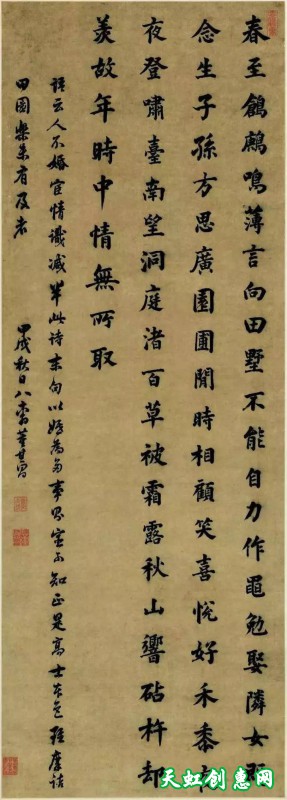 春至鶬鶊鳴薄言向田墅不能自力作黽勉娶隣女既
念生子孫方思廣園圃閒時相顧笑喜悅好禾黍夜
夜登嘯臺南望洞庭渚百草被霜露秋山響砧杵却
羨故年時中情無所取
語云人不婚宦情識减半此詩末句以婚為多事知正是高士本色摩詰
田園樂未有及者
甲戌秋日八十翁董其昌
天虹创惠网